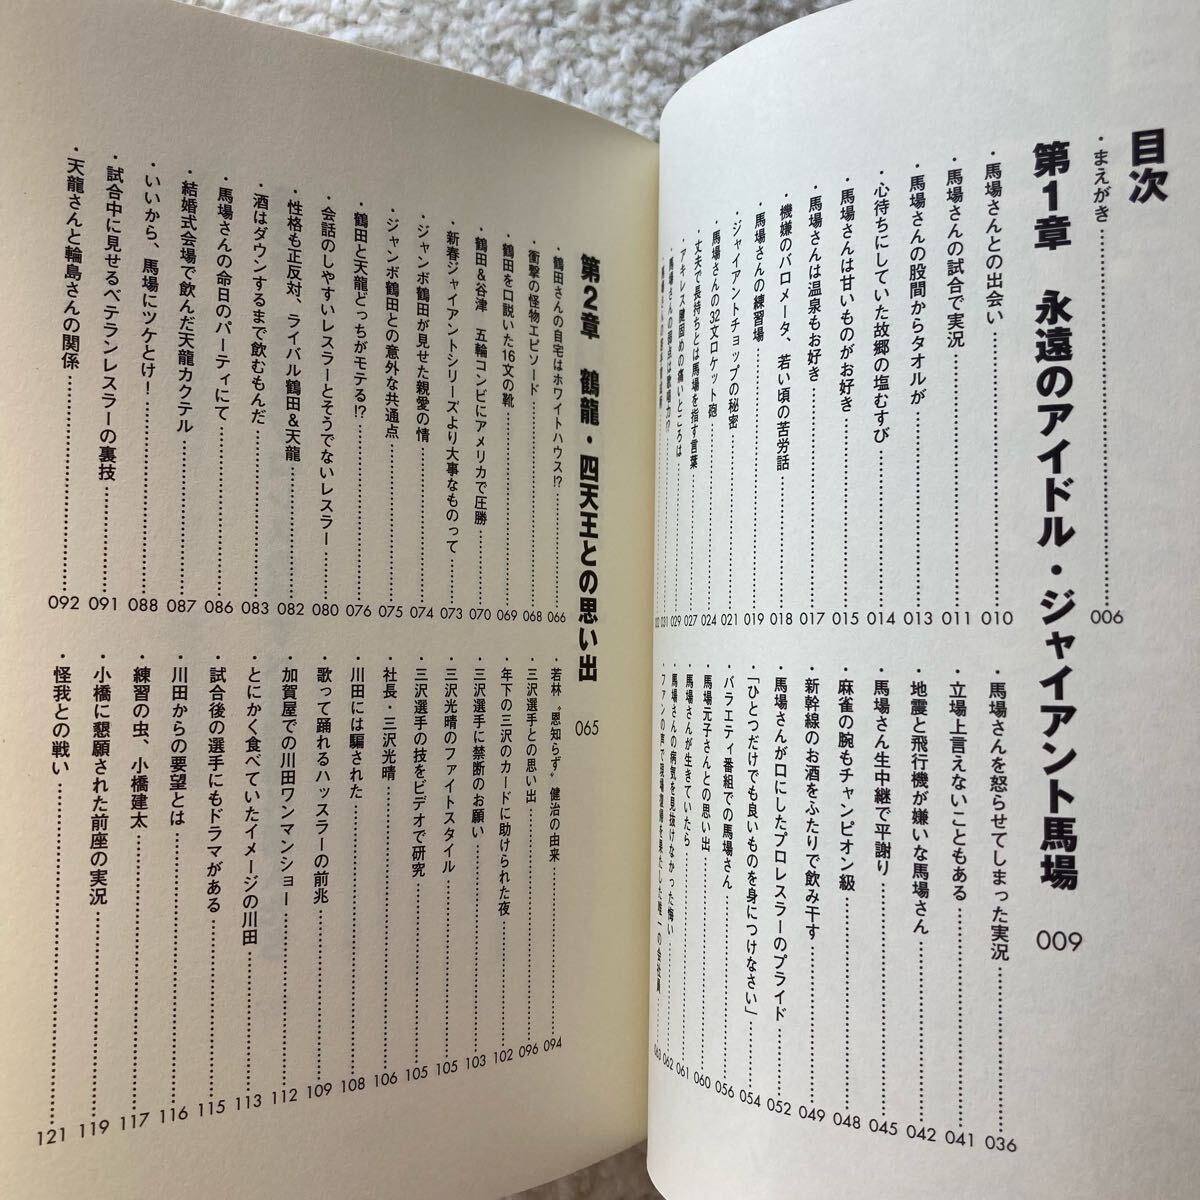 目次
・まえがき 006
第1章 永遠のアイドル・ジャイアント馬場 009
・馬場さんとの出会い 010
・馬場さんの試合で実況 011
・馬場さんの股間からタオルが 013
・心待ちにしていた故郷の塩むすび 014
・馬場さんは甘いものがお好き 015
・馬場さんは温泉もお好き 017
・機嫌のバロメータ、若い頃の苦労話 018
・馬場さんの練習場 019
・ジャイアントチョップの秘密 021
・馬場さんの32文ロケット砲 024
・丈夫で長持ちとは馬場を指す言葉 027
・アキレス腱固めの痛いところは 029
・馬場さんの弱点は歌唱力!? 031
・馬場さんを怒らせてしまった実況 036
・立場上言えないこともある 041
・地震と飛行機が嫌いな馬場さん 042
・馬場さん生中継で平謝り 045
・麻雀の腕もチャンピオン級 048
・新幹線のお酒をふたりで飲み干す 049
・馬場さんが口にしたプロレスラーのプライド 052
・「ひとつだけでも良いものを身につけなさい」 054
・バラエティ番組での馬場さん 056
・馬場元子さんとの思い出 060
・馬場さんが生きていたら 061
・馬場さんの病気を見抜けなかった悔い 062
・ファンの声で現場復帰を果たした唯一の会社員 063
第2章 鶴龍・四天王との思い出 065
・鶴田さんの自宅はホワイトハウス!? 066
・衝撃の怪物エピソード 068
・鶴田を口説いた16文の靴 069
・鶴田＆谷津 五輪コンビにアメリカで圧勝 070
・新春ジャイアントシリーズより大事なものって 073
・ジャンボ鶴田が見せた親愛の情 074
・ジャンボ鶴田との意外な共通点 075
・鶴田と天龍どっちがモテる!? 076
・会話のしやすいレスラーとそうでないレスラー 080
・性格も正反対、ライバル鶴田＆天龍 082
・酒はダウンするまで飲むもんだ 083
・馬場さんの命日のパーティにて 086
・結婚式会場で飲んだ天龍カクテル 087
・いいから、馬場にツケとけ! 088
・試合中に見せるベテランレスラーの裏技 091
・天龍さんと輪島さんの関係 092
・若林〝恩知らず〟健治の由来 094
・三沢選手との思い出 096
・年下の三沢のカードに助けられた夜 102
・三沢選手に禁断のお願い 103
・三沢光晴のファイトスタイル 105
・三沢選手の技をビデオで研究 105
・社長・三沢光晴 106
・川田には騙された 108
・歌って踊れるハッスラーの前兆 109
・加賀屋での川田ワンマンショー 112
・とにかく食べていたイメージの川田 113
・試合後の選手にもドラマがある 115
・川田からの要望とは 116
・練習の虫、小橋建太 117
・小橋に懇願された前座の実況 119
・怪我との戦い 121